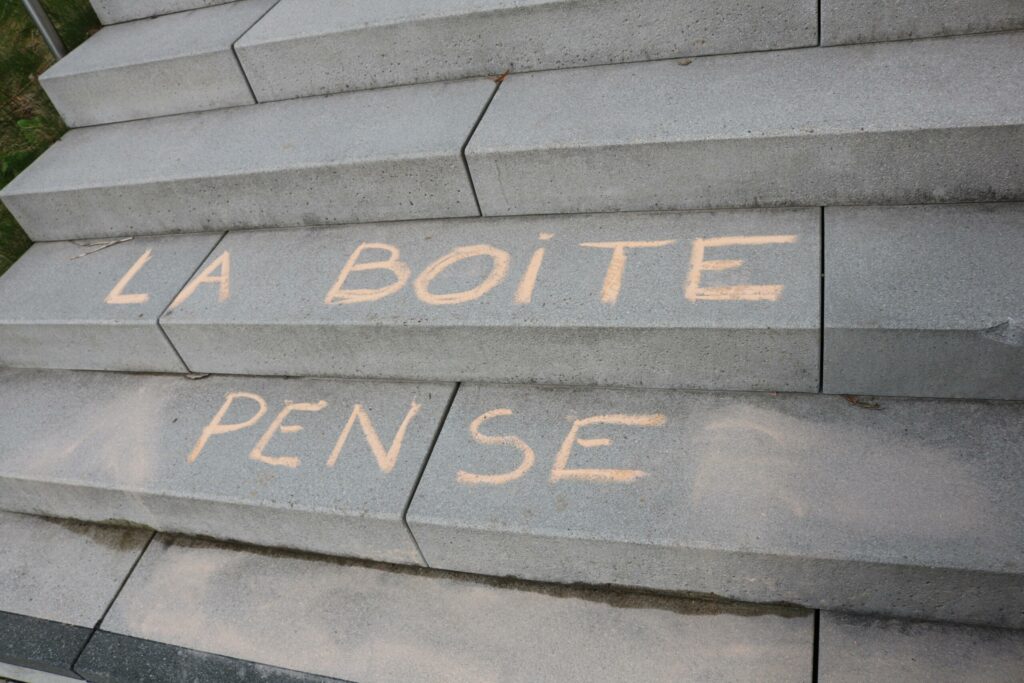 LA BOiTE
PENSE